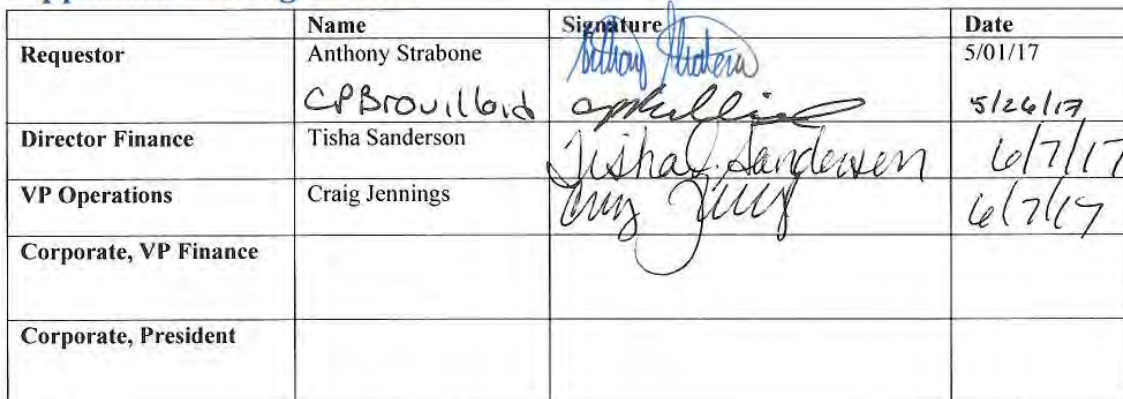 Name Signature Date
Requestor Anthony Strabone 5/01/17
CPBrouillard 5/26/17
Director Finance Tisha Sanderson Tisha L. Sanderson 6/7/17
VP Operations Craig Jennings 6/7/17
Corporate, VP Finance
Corporate, President